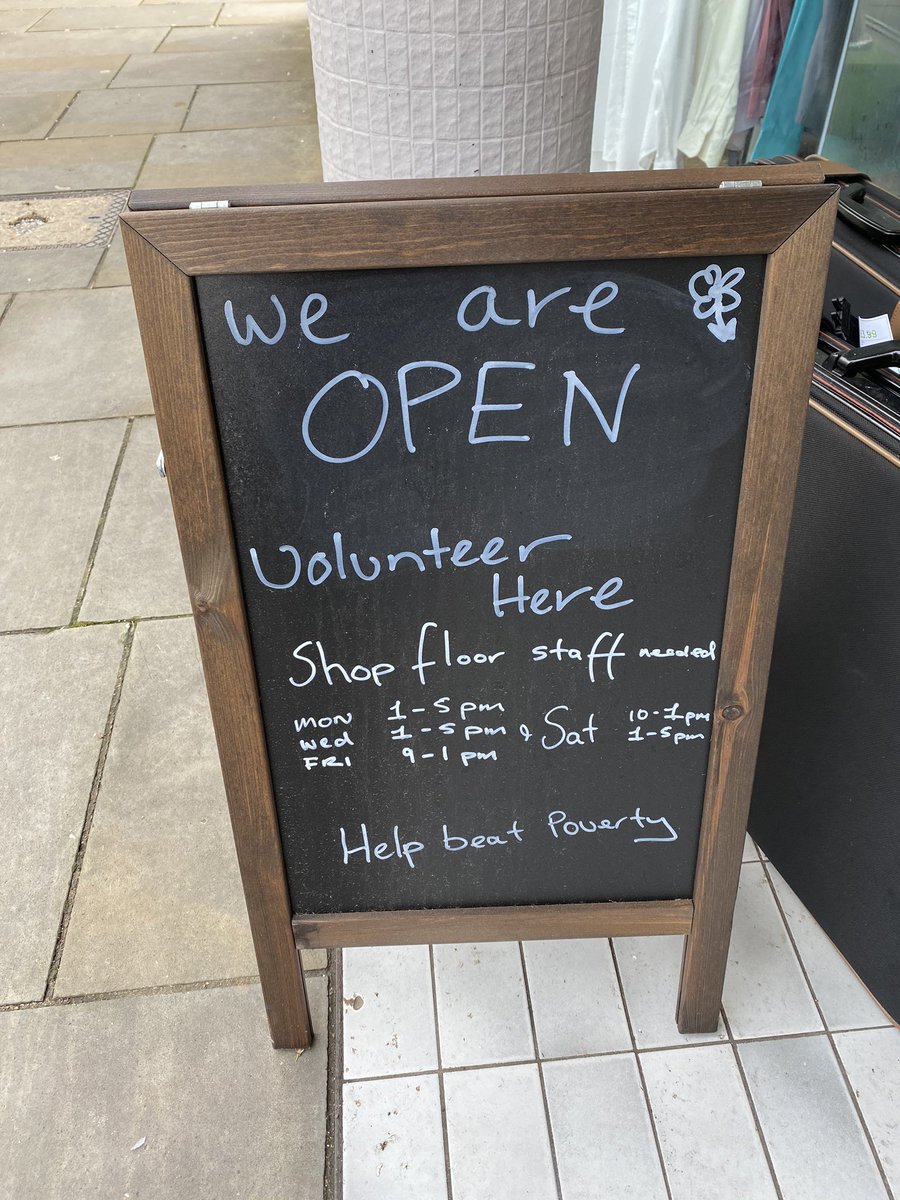 We are
OPEN
Volunteer
Here
Shop floor staff needed
MON 1-5pm
Wed 1-5pm & Sat 10-1pm
1-5pm
FRI 9-1pm
Help beat Poverty
9.99